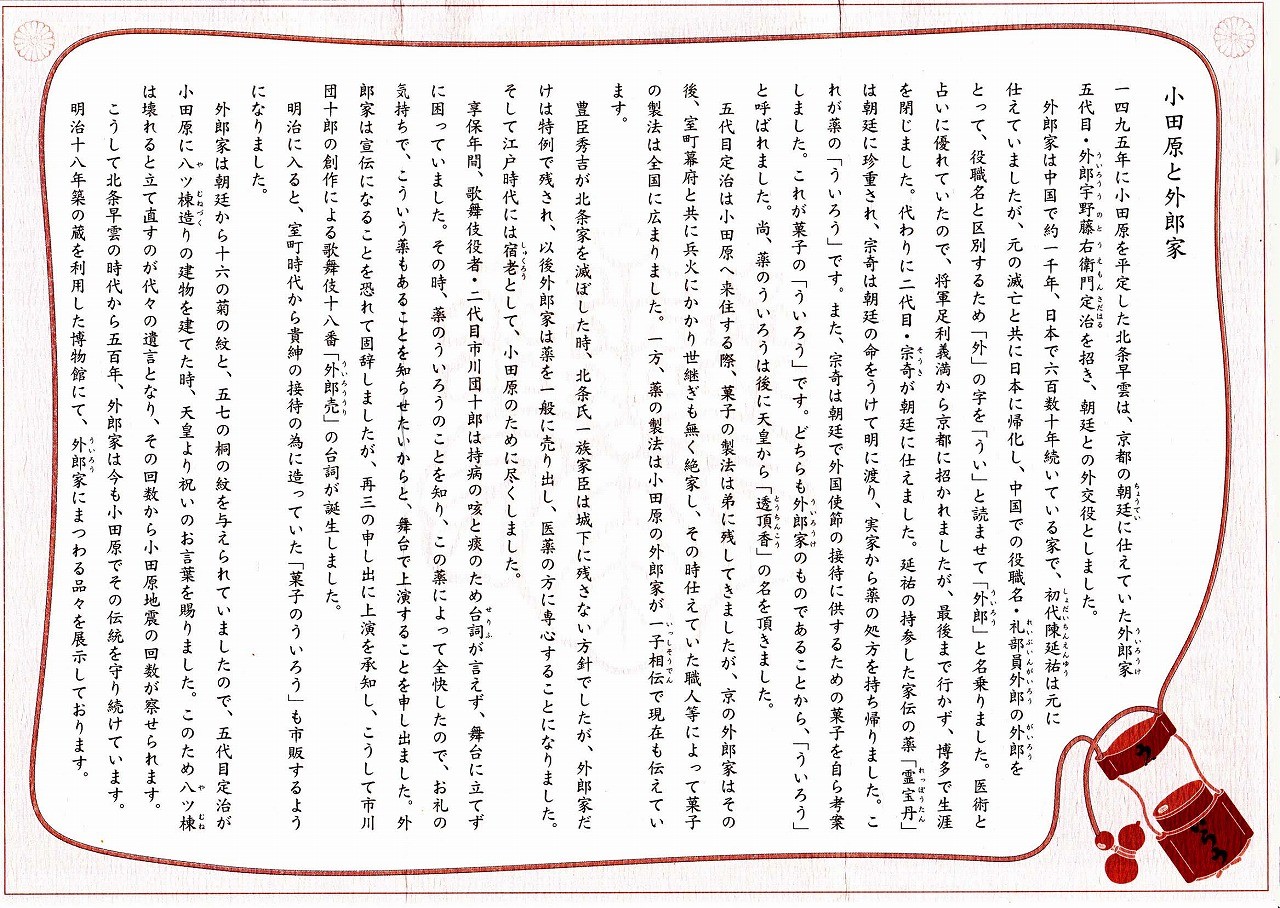 小田原と外郎家
一四九五年に小田原を平定した北条早雲は、京都の朝廷に仕えていた外郎家
五代目・外郎宇野藤右衛門定治を招き、朝廷との外交役としました。
外郎家は中国で約一千年、日本で六百数十年続いている家で、初代陳延祐は元に
仕えていましたが、元の滅亡と共に日本に帰化し、中国での役職名・礼部員外郎の外郎を
とって、役職名と区別するため「外」の字を「うい」と読ませて「外郎」と名乗りました。医術と
占いに優れていたので、将軍足利義満から京都に招かれましたが、最後まで行かず、博多で生涯
を閉じました。代わりに二代目・宗奇が朝廷に仕えました。延祐の持参した家伝の薬「霊宝丹」
は朝廷に珍重され、宗奇は朝廷の命をうけて明に渡り、実家から薬の処方を持ち帰りました。こ
れが薬の「ういろう」です。また、宗奇は朝廷で外国使節の接待に供するための菓子を自ら考案
しました。これが菓子の「ういろう」です。どちらも外郎家のものであることから、「ういろう」
と呼ばれました。尚、薬のういろうは後に天皇から「透頂香」の名を頂きました。
五代目定治は小田原へ来住する際、菓子の製法は弟に残してきましたが、京の外郎家はその
後、室町幕府と共に兵火にかかり世継ぎも無く絶家し、その時仕えていた職人等によって菓子
の製法は全国に広まりました。一方、薬の製法は小田原の外郎家が一子相伝で現在も伝えてい
ます。
豊臣秀吉が北条家を滅ぼした時、北条氏一族家臣は城下に残さない方針でしたが、外郎家だ
けは特例で残され、以後外郎家は薬を一般に売り出し、医薬の方に専心することになりました。
そして江戸時代には宿老として、小田原のために尽くしました。
享保年間、歌舞伎役者・二代目市川団十郎は持病の咳と痰のため台詞が言えず、舞台に立てず
に困っていました。その時、薬のういろうのことを知り、この薬によって全快したので、お礼の
気持ちで、こういう薬もあることを知らせたいからと、舞台で上演することを申し出ました。外
郎家は宣伝になることを恐れて固辞しましたが、再三の申し出に上演を承知し、こうして市川
団十郎の創作による歌舞伎十八番「外郎売」の台詞が誕生しました。
明治に入ると、室町時代から貴紳の接待の為に造っていた「菓子のういろう」も市販するよう
になりました。
外郎家は朝廷から十六の菊の紋と、五七の桐の紋を与えられていましたので、五代目定治が
小田原に八ツ棟造りの建物を建てた時、天皇より祝いのお言葉を賜りました。このため八ツ棟
は壊れると立て直すのが代々の遺言となり、その回数から小田原地震の回数が察せられます。
こうして北条早雲の時代から五百年、外郎家は今も小田原でその伝統を守り続けています。
明治十八年築の蔵を利用した博物館にて、外郎家にまつわる品々を展示しております。